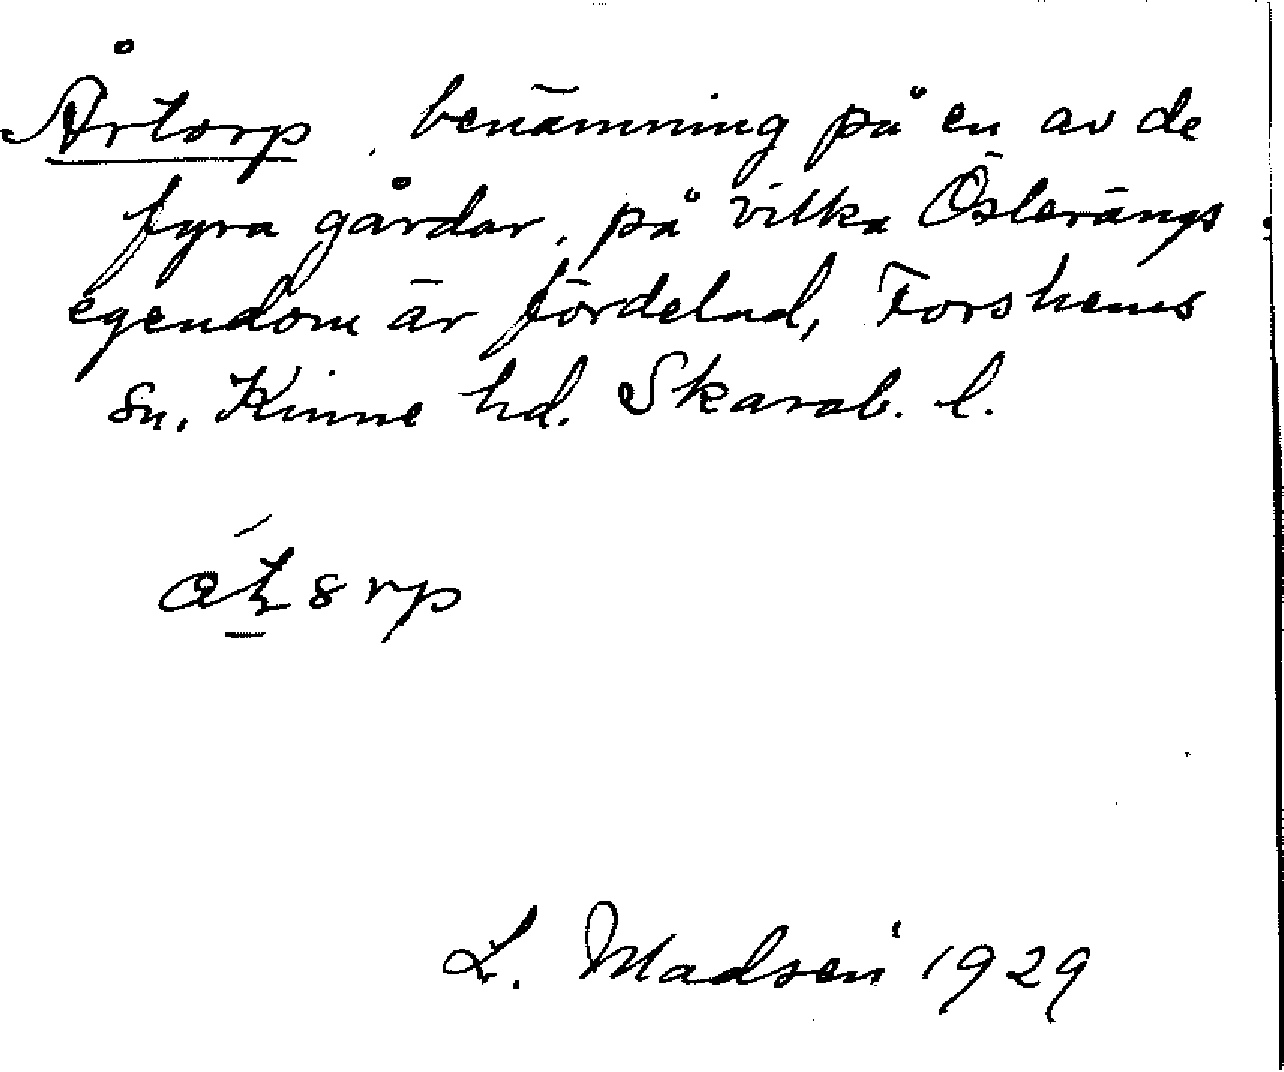 Årtorp, benämning på en av de
fyra gårdar, på vilka Österängs
egendom är fördelad, Forshems
sn. Kinne hd. Skarab. l.
L. Madsén 1929